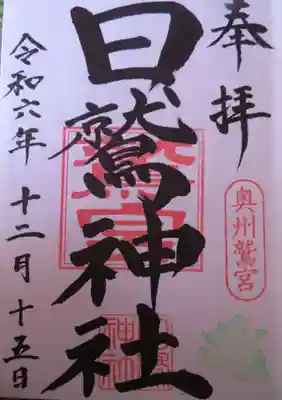 奉拝
奥州鷲宮
日鷲神社
令和六年 十二月 十五日